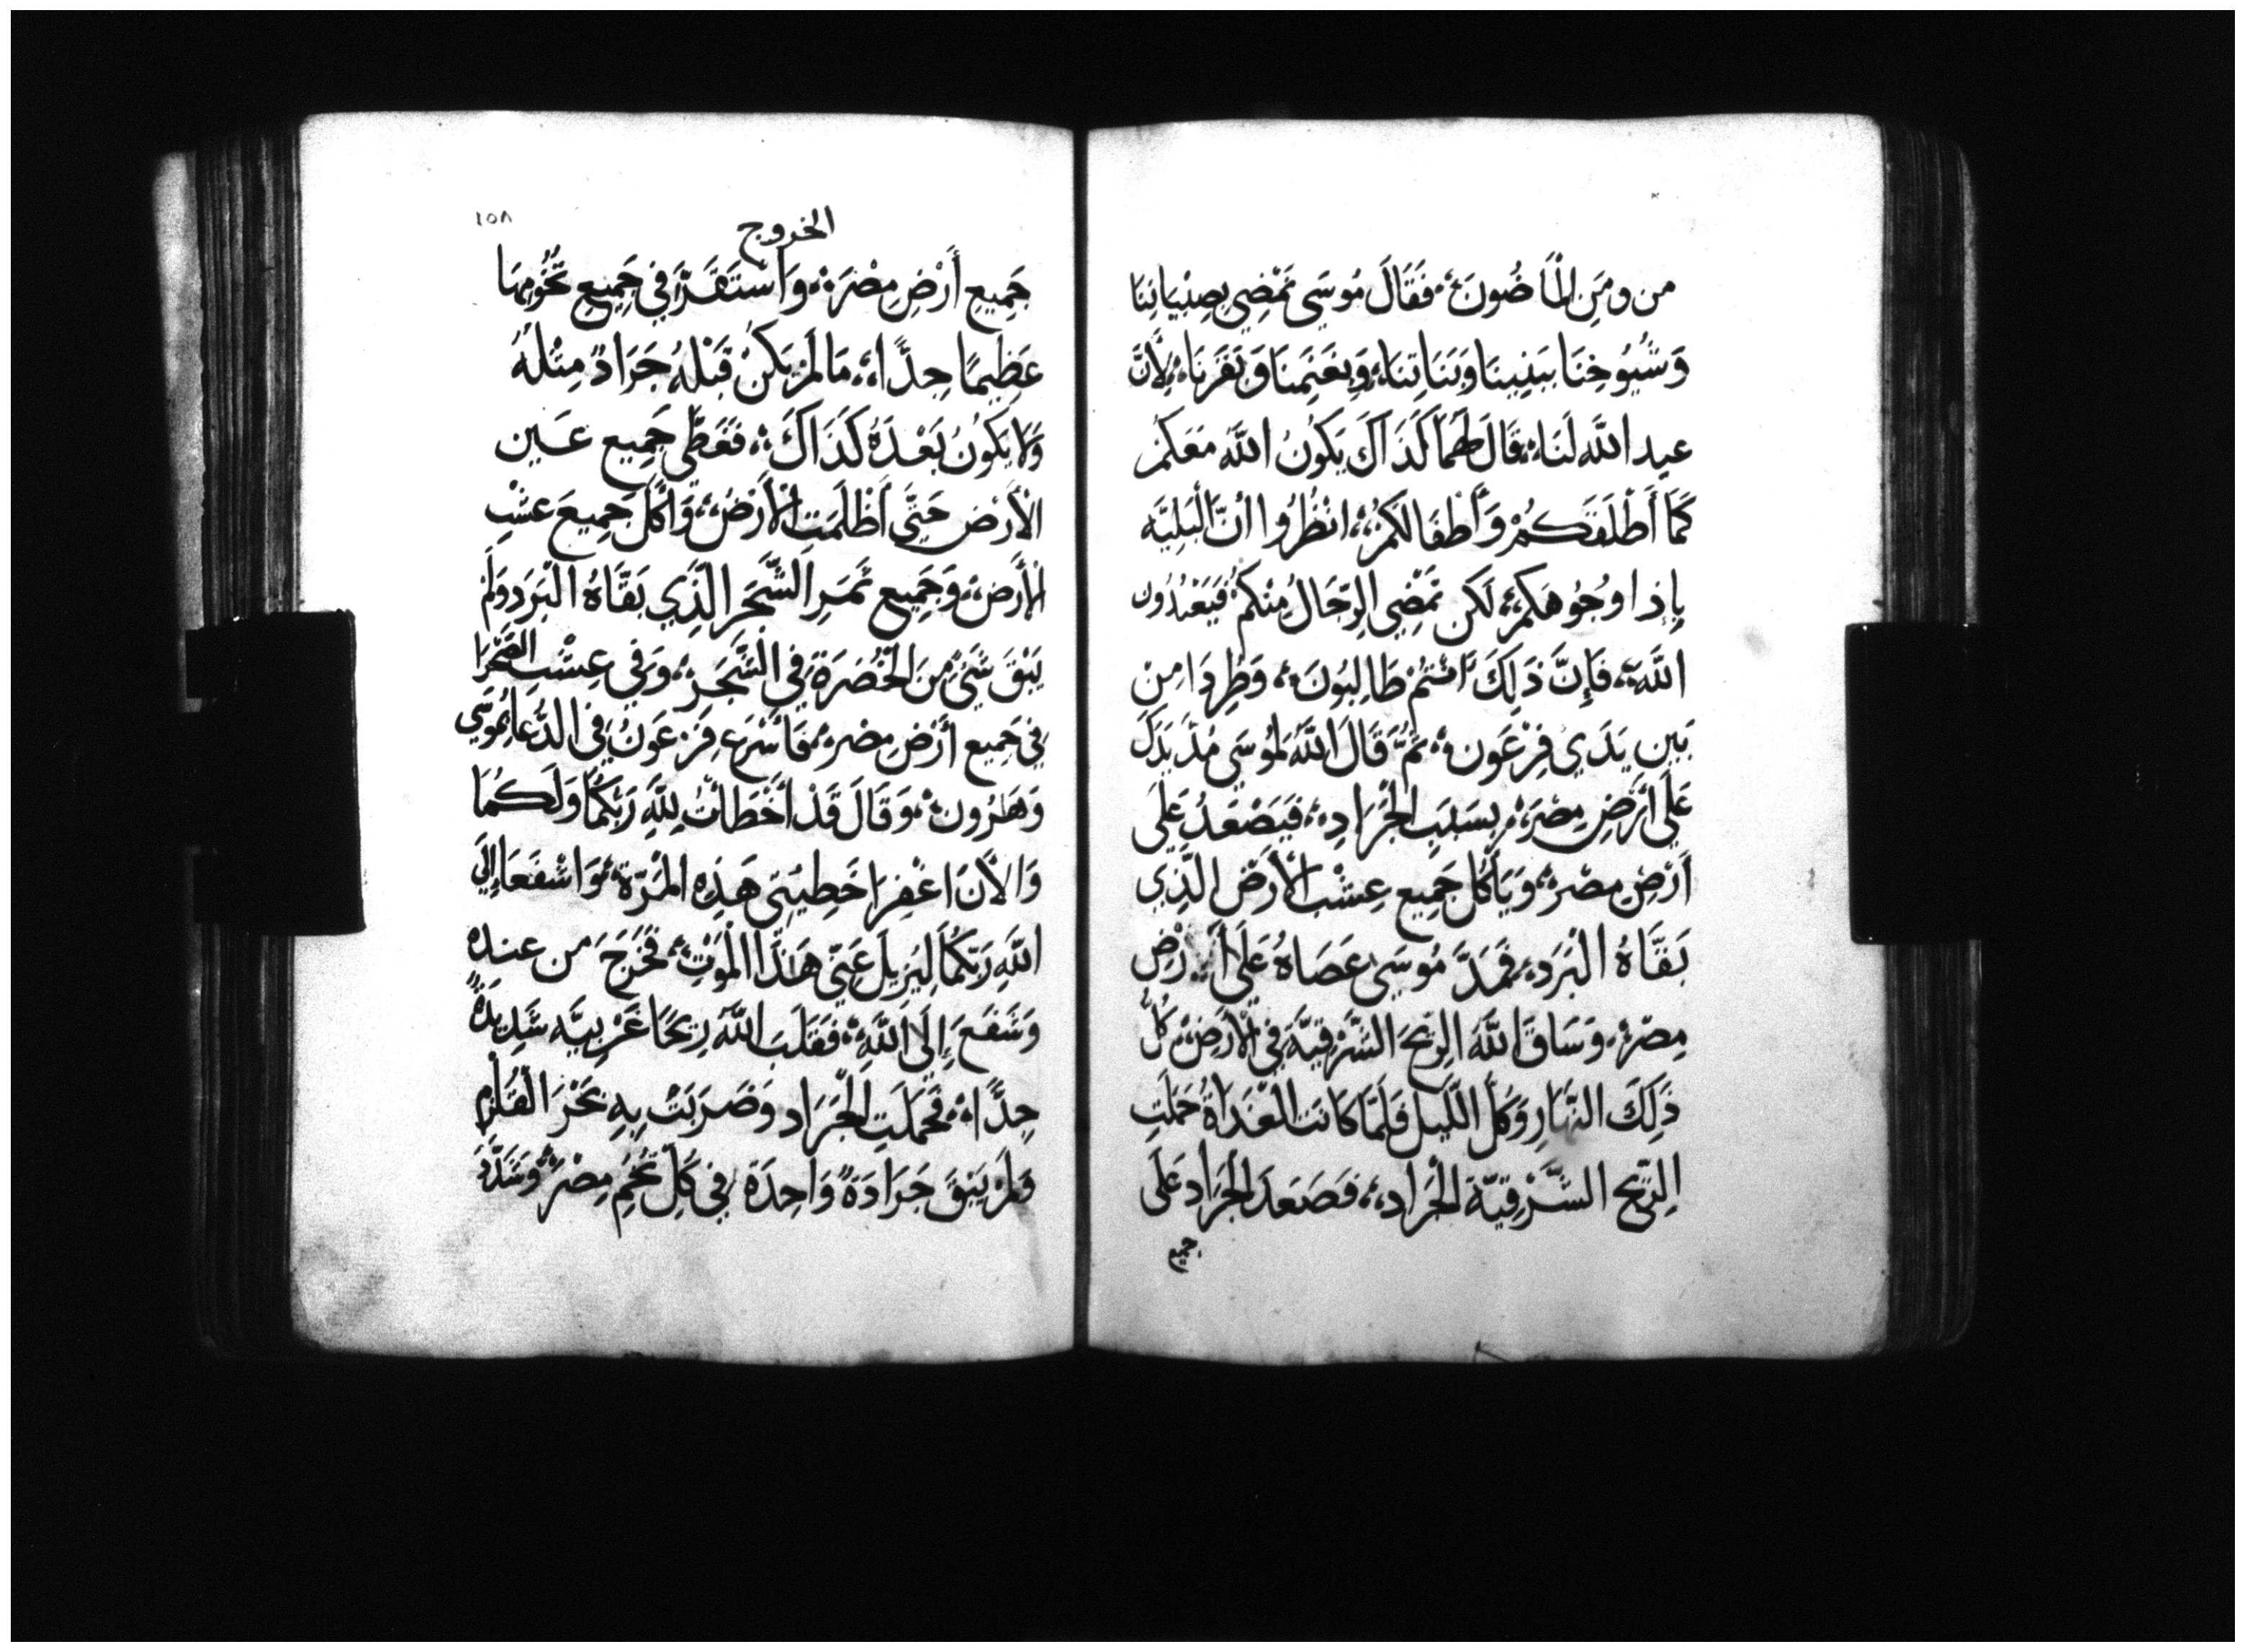 من ومَنِ الْمَاضُونَ، فَقَالَ مُوسَى نَمْضِي بِصِبْيَانِنَا
وَشُيُوخِنَا بَبَنِينَا وَبَنَاتِنَا، وَبِغَنَمِنَا وَبَقَرِنَا، لِأَنَّ
عيد اللَّه لَنَا، قَالَ لَهُمَا كَذَاكَ يَكُونُ اللَّهَ مَعَكُمْ
كَمَا أَطْلَقَكُمْ وَأَطْفَالَكُمْ، انْظُرُوا أَنَّ الْبَلِيَّه
بِإِذا وُجُوهَكُمْ، لَكن تَمْضِي الرِّجَالُ مِنْكُمْ فَيَعْبُدُون
اللَّه، فَإِنَّ ذَلِكَ أَنْتُمْ طَالِبُونَ، وَطُرِدَا مِنْ
بَين يَدَي فِرْعَون، ثُمَّ قَالَ اللَّه لِمُوسَى مُدَّ يَدَكَ
عَلَى أَرْضِ مِصْرَ، بِسَبَبِ الْجَرَادِ، فَيَصْعَدُ عَلَى
أَرْضِ مِصْرَ، وَيَأْكُل جَمِيع عِشْب الْأَرْض الَّذِي
بَقَّاهُ الْبَرَد، فَمَدَّ مُوسَى عَصَاهُ عَلَى أَرْضِ
مِصْرَ، وَسَاقَ اللَّه الرِّيحَ الشَّرْقِيَّةَ فِي الْأَرْضِ، كُلَّ
ذَلِكَ النَّهَارِ وَكُلَّ اللَّيل فَلَمَّا كَانَت الْغَدَاةُ حَمَلَتِ
الرِّيح الشَّرْقِيَّة الْجَرَاد، فَصَعَدَ الْجَرَاد عَلَى
جميع
١٥٨
الخروج
جَمِيعِ أَرْضِ مِصْرَ، وَاسْتَقَرَّ فِي جَمِيعِ تُخُومِهَا
عَظِيمًا جِدًّا، مَا لَمْ يَكُنْ قَبْلَهُ جَرَادٌ مِثْلُهُ
وَلَا يَكُونُ بَعْدَهُ كَذَاكَ، فَغَطَّى جَمِيع عَين
الْأَرْض حَتَّى أَظْلَمَت الْأَرْضُ، وَأَكَلَ جَمِيعَ عشْبِ
الْأَرْض، وَجَمِيع ثَمَرِ الشَّجَر الَّذِي بَقَّاهُ الْبَرَد وَلَمْ
يَبْقَ شَيْءٌ مِنَ الْخُضْرَة فِي الشَّجَرِ، وَفِي عِشْبِ الصَّحْرَا
فِي جَمِيع أَرْضِ مِصْر، فَأَسْرَع فِرْعَوْنُ فِي الدُّعَا بِمُوسَى
وَهَرُون، وَقَالَ قَدْ أَخْطَأْتُ لِلَّهِ رَبِّكُمَا وَلَكُمَا
وَالْأَنَ اغْفِرَا خَطِيئَتِي هَذِه الْمَرَّة، وَاشْفَعَا إِلَى
اللَّهِ رَبِّكُمَا لِيُزيلَ عَنِّي هَذَا الْمَوْتَ، فَخَرَجَ من عندِهِ
وَشَفَعَ إِلَى اللَّهِ، فَقَلَبَ اللَّه رِيحًا غَرْبِيَّه شَدِيدَةً
جِدًّا، فَحَمَلَت الْجَرَاد وَضَرَبَتْ بِهِ بَحْرَ الْقُلْزُم
وَلَمْ يَبْقَ جَرَادَةً وَاحِدَة فِي كُلِّ تُخُمِ مِصْرَ، وَشَدَّدَ